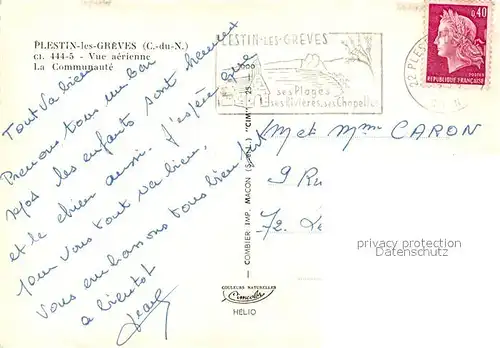 PLESTIN-les-GRÈVES (C.-du-N.)
CI. 444-5 - Vue aérienne
La Communauté
Tout va bien
Prenons tous un bon
repos les enfants sont heureux
et le chien aussi. J'espère que
pour vous tout va bien,
Vous embrassons tous bien fort
a bientôt
PLESTIN-LES-GRÈVES
ses Plages
ses Rivières, ses Chapelles
22 PLES
0,40
POSTES
REPUBLIQUE FRANÇAISE
M et Mme CARON
9 Ru
72. Le
privacy protection
Datenschutz
— COMBIER IMP. MACON (S.-&-L.) "CIM"
COULEURS NATURELLES
Cimcolor
HELIO